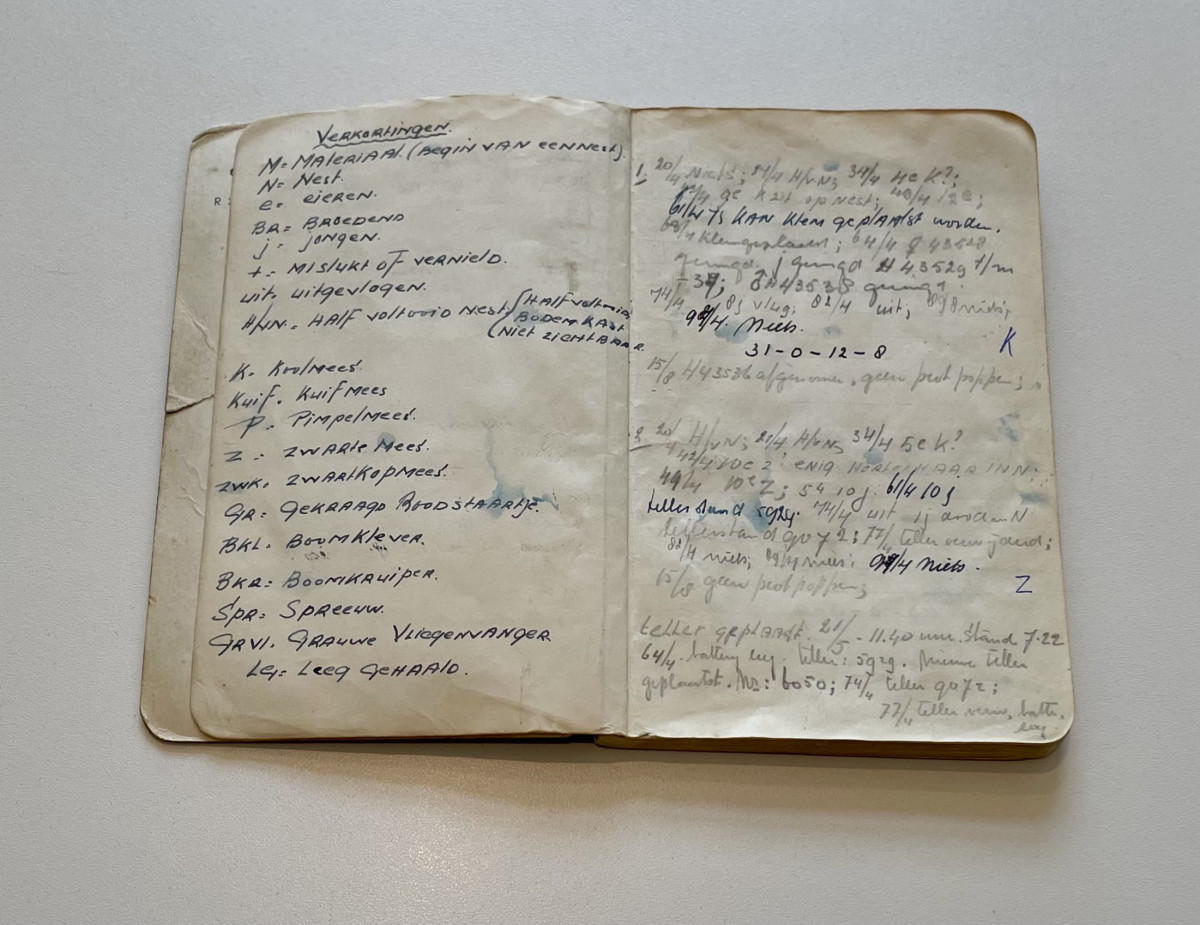 Verkortingen.
M= Materiaal. (Begin van een nest).
N= Nest.
e= eieren.
BR= Broedend
j= jongen.
+= Mislukt of vernield.
uit. uitgevlogen.
H/vN= Half voltooid nest (Half voltooid
Bodem kast
niet zichtbaar.
K. Koolmees.
Kuif. Kuifmees
P. Pimpelmees.
Z = Zwarte Mees.
ZWK. Zwartkopmees.
GR= Gekraagd Roodstaartje.
BKL= Boomklever.
BKR= Boomkruiper.
Spr= Spreeuw.
GRVl. Grauwe Vliegenvanger
LG= Leeg Gehaald.
R
1. 20/4 Niets; 21/4 H/vN; 34/4 4e K?;
42/4 9e K zit op nest; 48/4 12e;
61/4 7j kan klem geplaatst worden.
64/4 H 43528
geringd. j geringd H 43529 t/m
74/4 8j vlug; 82/4 uit; 89/8 niets;
98/4. Niets.
31-0-12-8
K
15/8 H43536 afgenomen, geen prot poppen;
2 20/4 H/vN; 21/4 H/vN; 34/4 5e K?
42/4 10e Z: enig hertenhaar in N;
49/4 10e Z; 54 10j. 61/4 10j
tellerstand 5929. 74/4 uit 1j dood in N
tellerstand 9072; 77/4 teller verwijderd;
82/4 niets; 89/4 niets: 98/4 Niets.
Z
15/8 geen prot poppen;
teller geplaatst. 21/5 - 11.40 uur. Stand 7.22
64/4. battery leeg. teller: 5929. Nieuwe teller
geplaatst. Nr: 6050; 74/4 teller 9072;
77/4 teller verw, batt.
leeg.